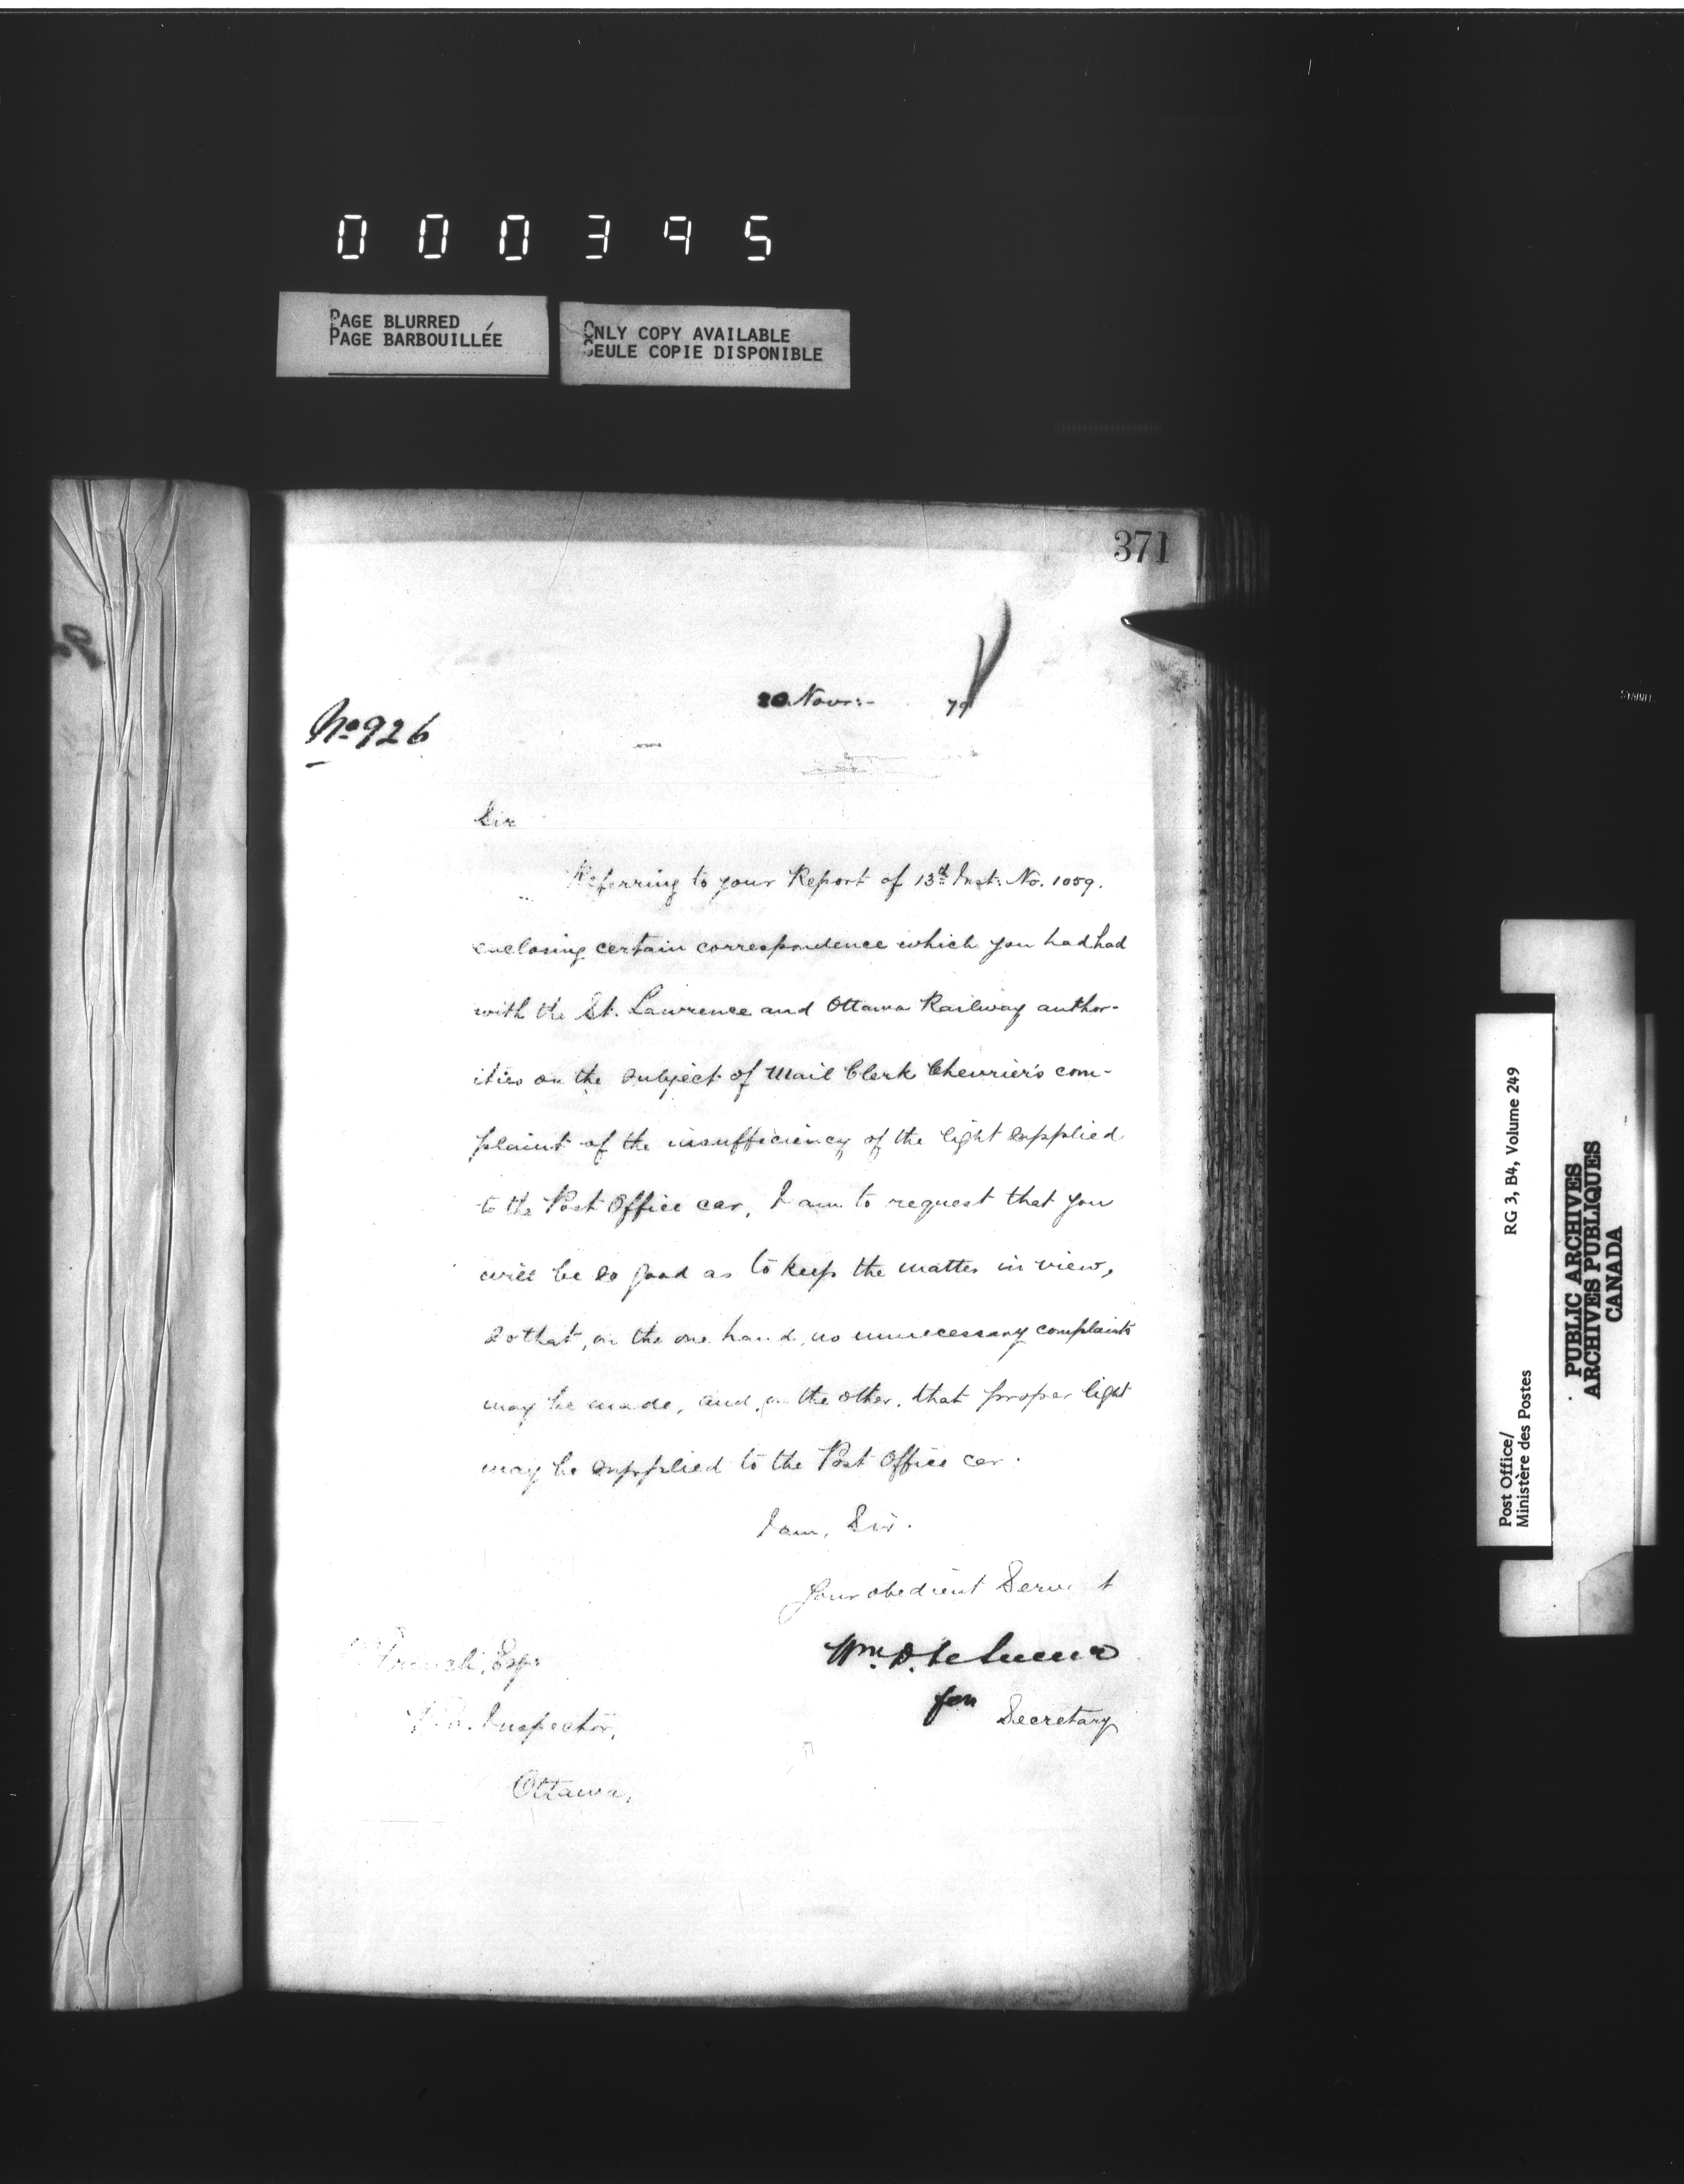 000395
PAGE BLURRED
PAGE BARBOUILLÉE
ONLY COPY AVAILABLE
SEULE COPIE DISPONIBLE
371
20 Novr:- 79
No 926
Sir
Referring to your Report of 13th Inst. No. 1059.
enclosing certain correspondence which you had had
with the St. Lawrence and Ottawa Railway author-
ities on the subject of Mail Clerk Chevrier's com-
plaint of the insufficiency of the light supplied
to the Post Office car, I am to request that you
will be so good as to keep the matter in view,
so that, on the one hand, no unnecessary complaints
may be made, and, on the other, that proper light
may be supplied to the Post Office car.
I am, Sir.
Your obedient Servant
Wm. D. Le Sueur
for Secretary
French, Esqr
P.O. Inspector,
Ottawa,
Post Office/
Ministère des Postes
RG 3, B4, Volume 249
PUBLIC ARCHIVES
ARCHIVES PUBLIQUES
CANADA